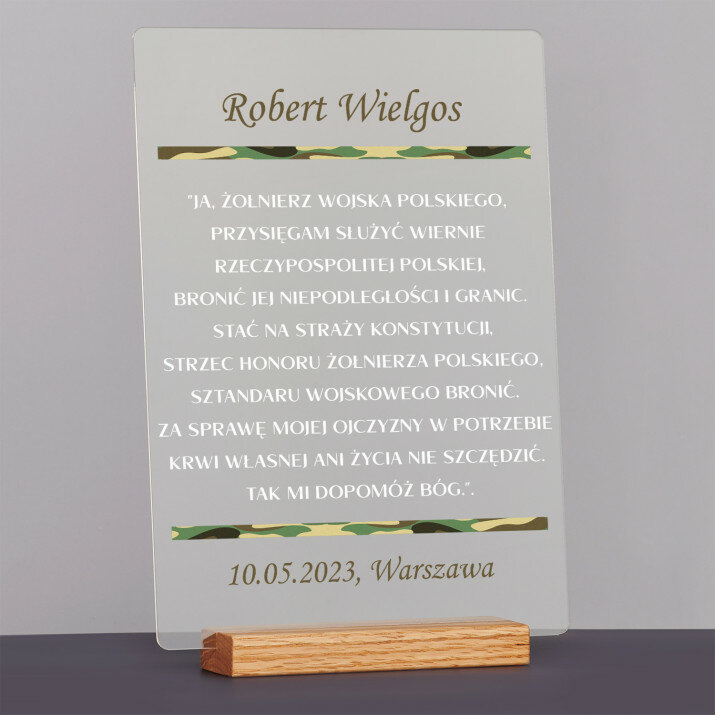 Robert Wielgos
"JA, ŻOŁNIERZ WOJSKA POLSKIEGO,
PRZYSIĘGAM SŁUŻYĆ WIERNIE
RZECZYPOSPOLITEJ POLSKIEJ,
BRONIĆ JEJ NIEPODLEGŁOŚCI I GRANIC.
STAĆ NA STRAŻY KONSTYTUCJI,
STRZEC HONORU ŻOŁNIERZA POLSKIEGO,
SZTANDARU WOJSKOWEGO BRONIĆ.
ZA SPRAWĘ MOJEJ OJCZYZNY W POTRZEBIE
KRWI WŁASNEJ ANI ŻYCIA NIE SZCZĘDZIĆ.
TAK MI DOPOMÓŻ BÓG.".
10.05.2023, Warszawa